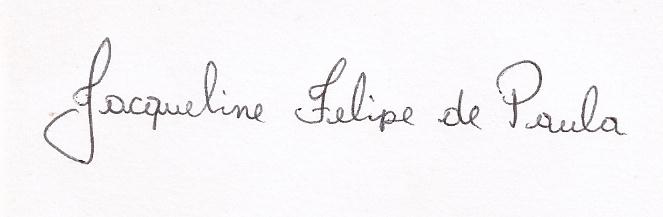 Jacqueline Felipe de Paula